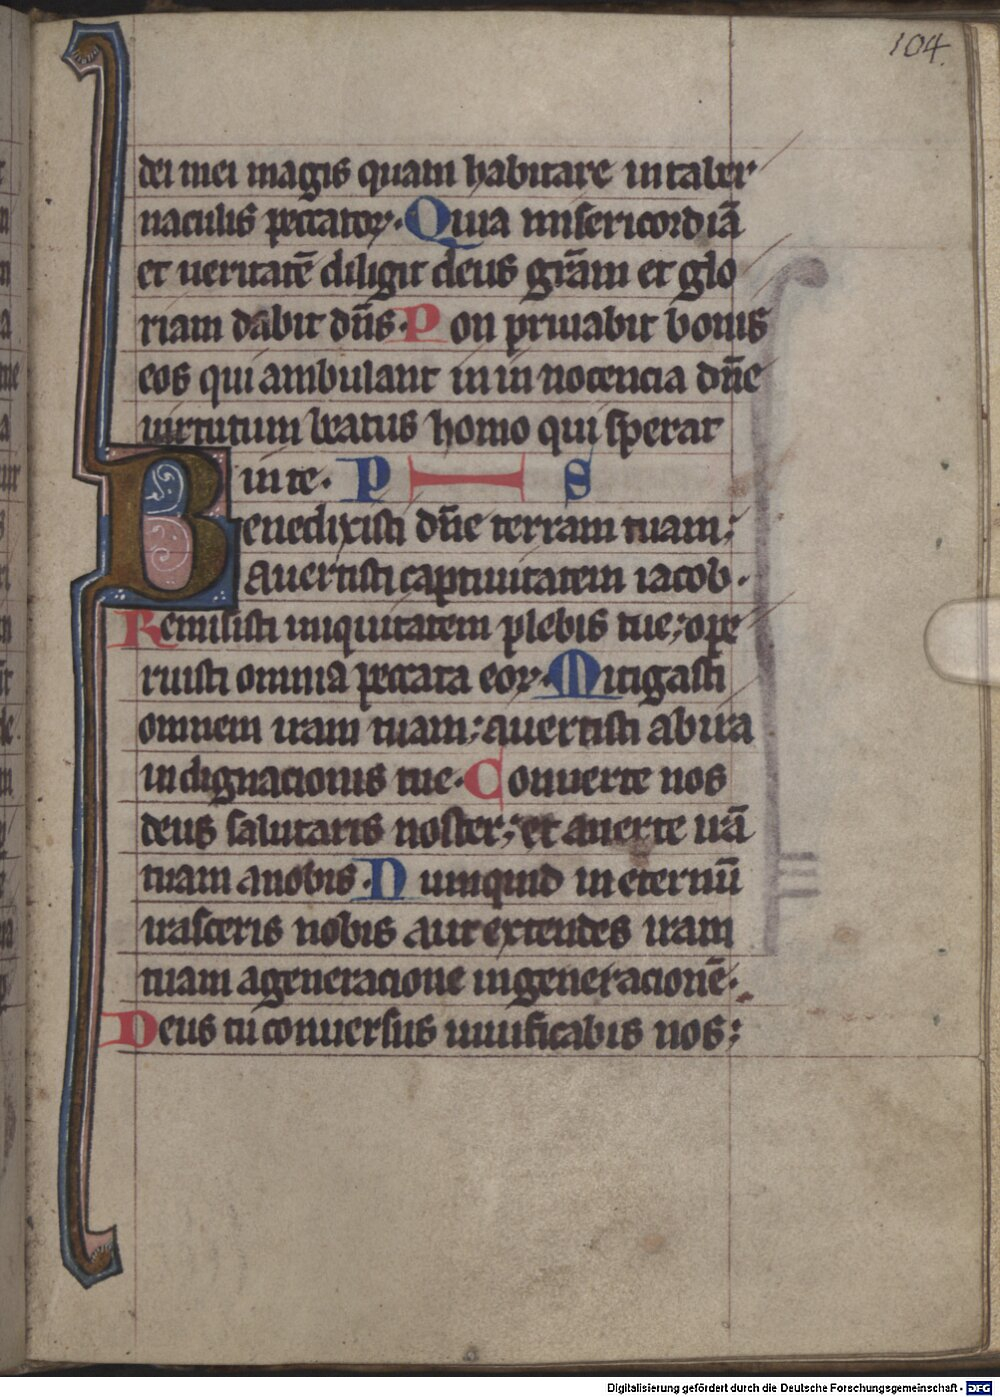 104.
dei mei magis quam habitare in taber
naculis peccatoꝝ. Quia misericordiā
et ueritatē diligit deus grām et glo
riam dabit dn̄s. Pon priuabit bonis
eos qui ambulant in in nocencia dn̄e
uirtutum beatus homo qui sperat
in te. P S
Benedixisti dn̄e terram tuam;
auertisti captiuitatem iacob.
Remisisti iniquitatem plebis tue; ope
ruisti omnia peccata eoꝝ. Mitigasti
omnem iram tuam; auertisti abira
indignacionis tue. Conuerte nos
deus salutaris noster; et auerte irā
tuam anobis. Numquid in eternū
irasceris nobis aut extendes iram
tuam ageneracione ingeneracionē.
Deus tu conuersus uiuificabis nos;
Digitalisierung gefördert durch die Deutsche Forschungsgemeinschaft - DFG